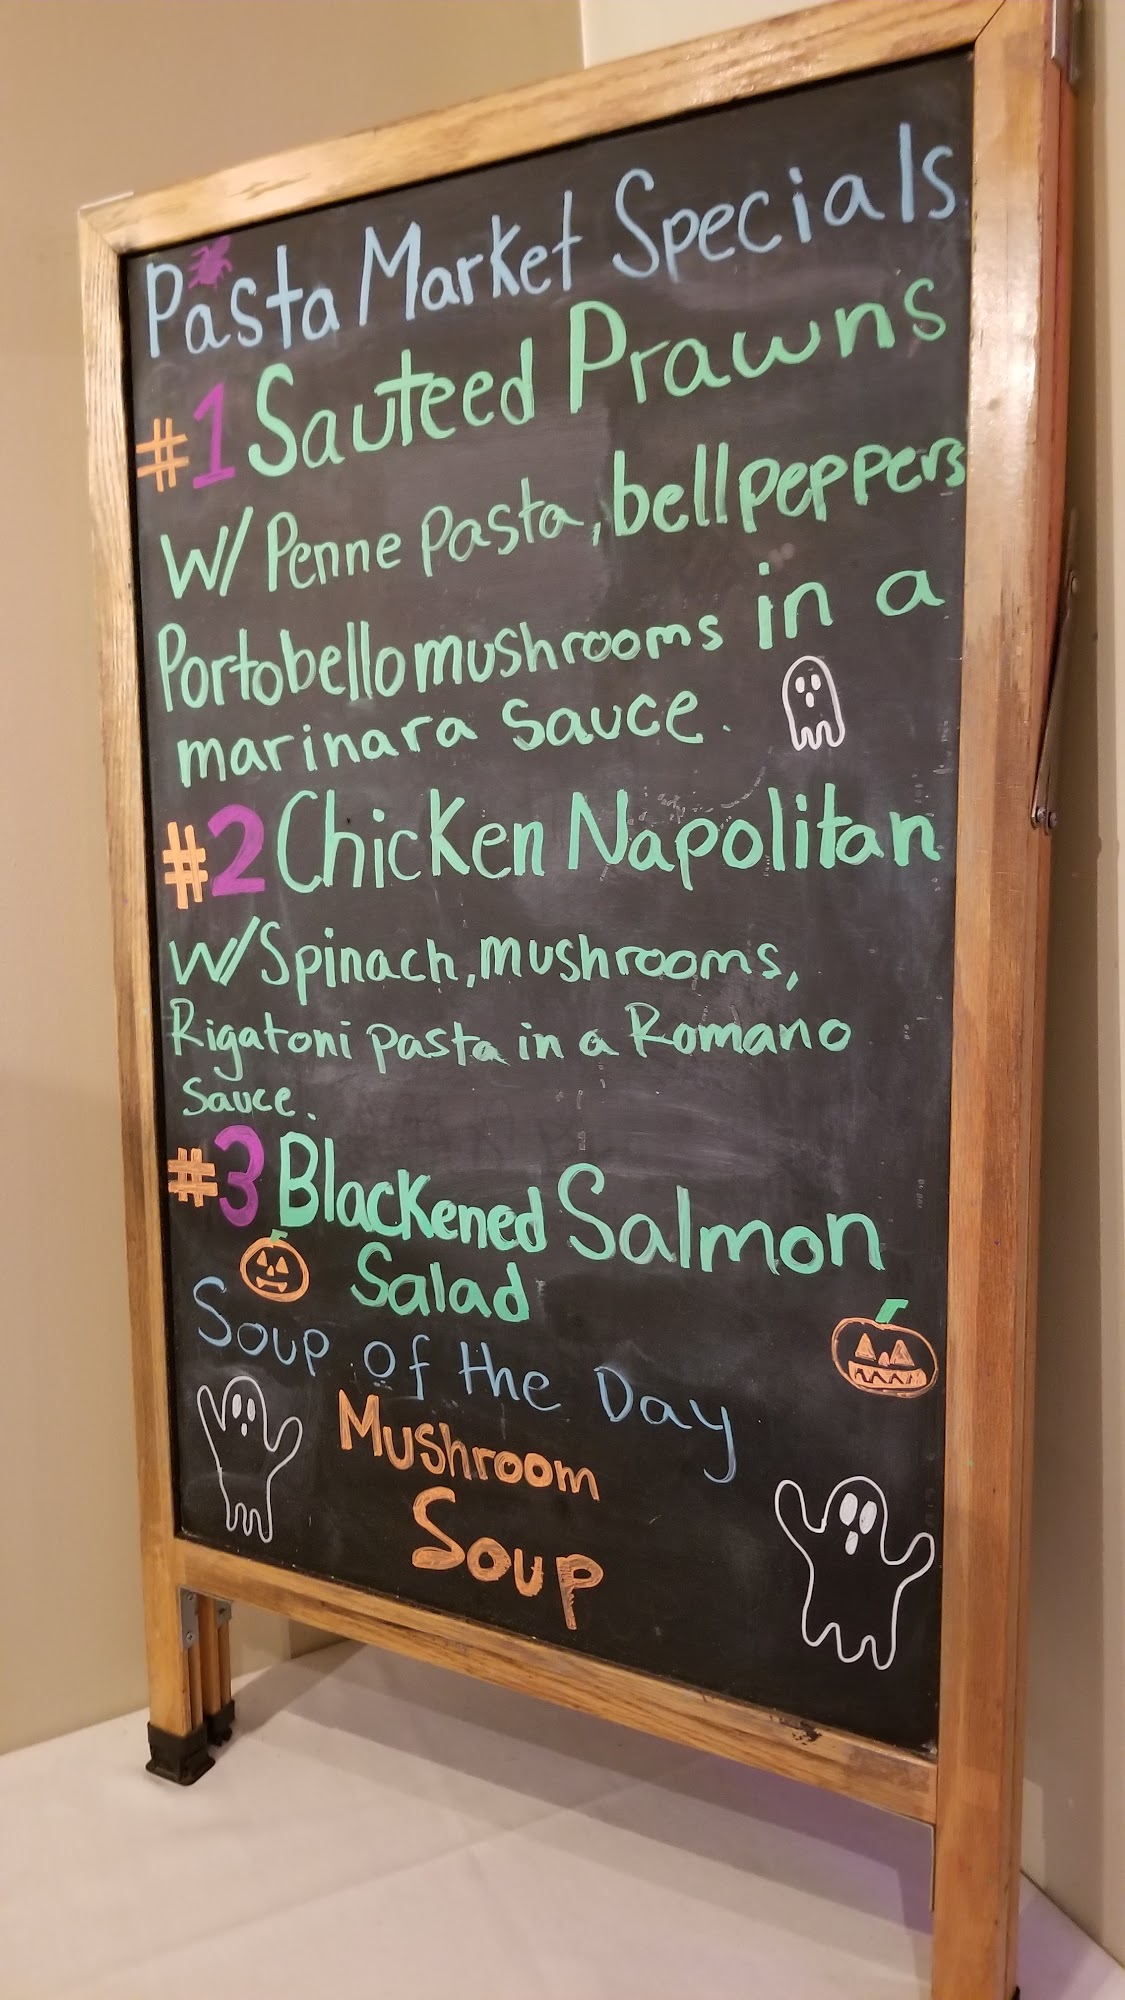 Pasta Market Specials
#1 Sauteed Prawns
w/ Penne pasta, bell peppers
Portobello mushrooms in a
marinara sauce.
#2 Chicken Napolitan
w/ Spinach, mushrooms,
Rigatoni pasta in a Romano
sauce.
#3 Blackened Salmon
Salad
Soup of the Day
Mushroom
Soup